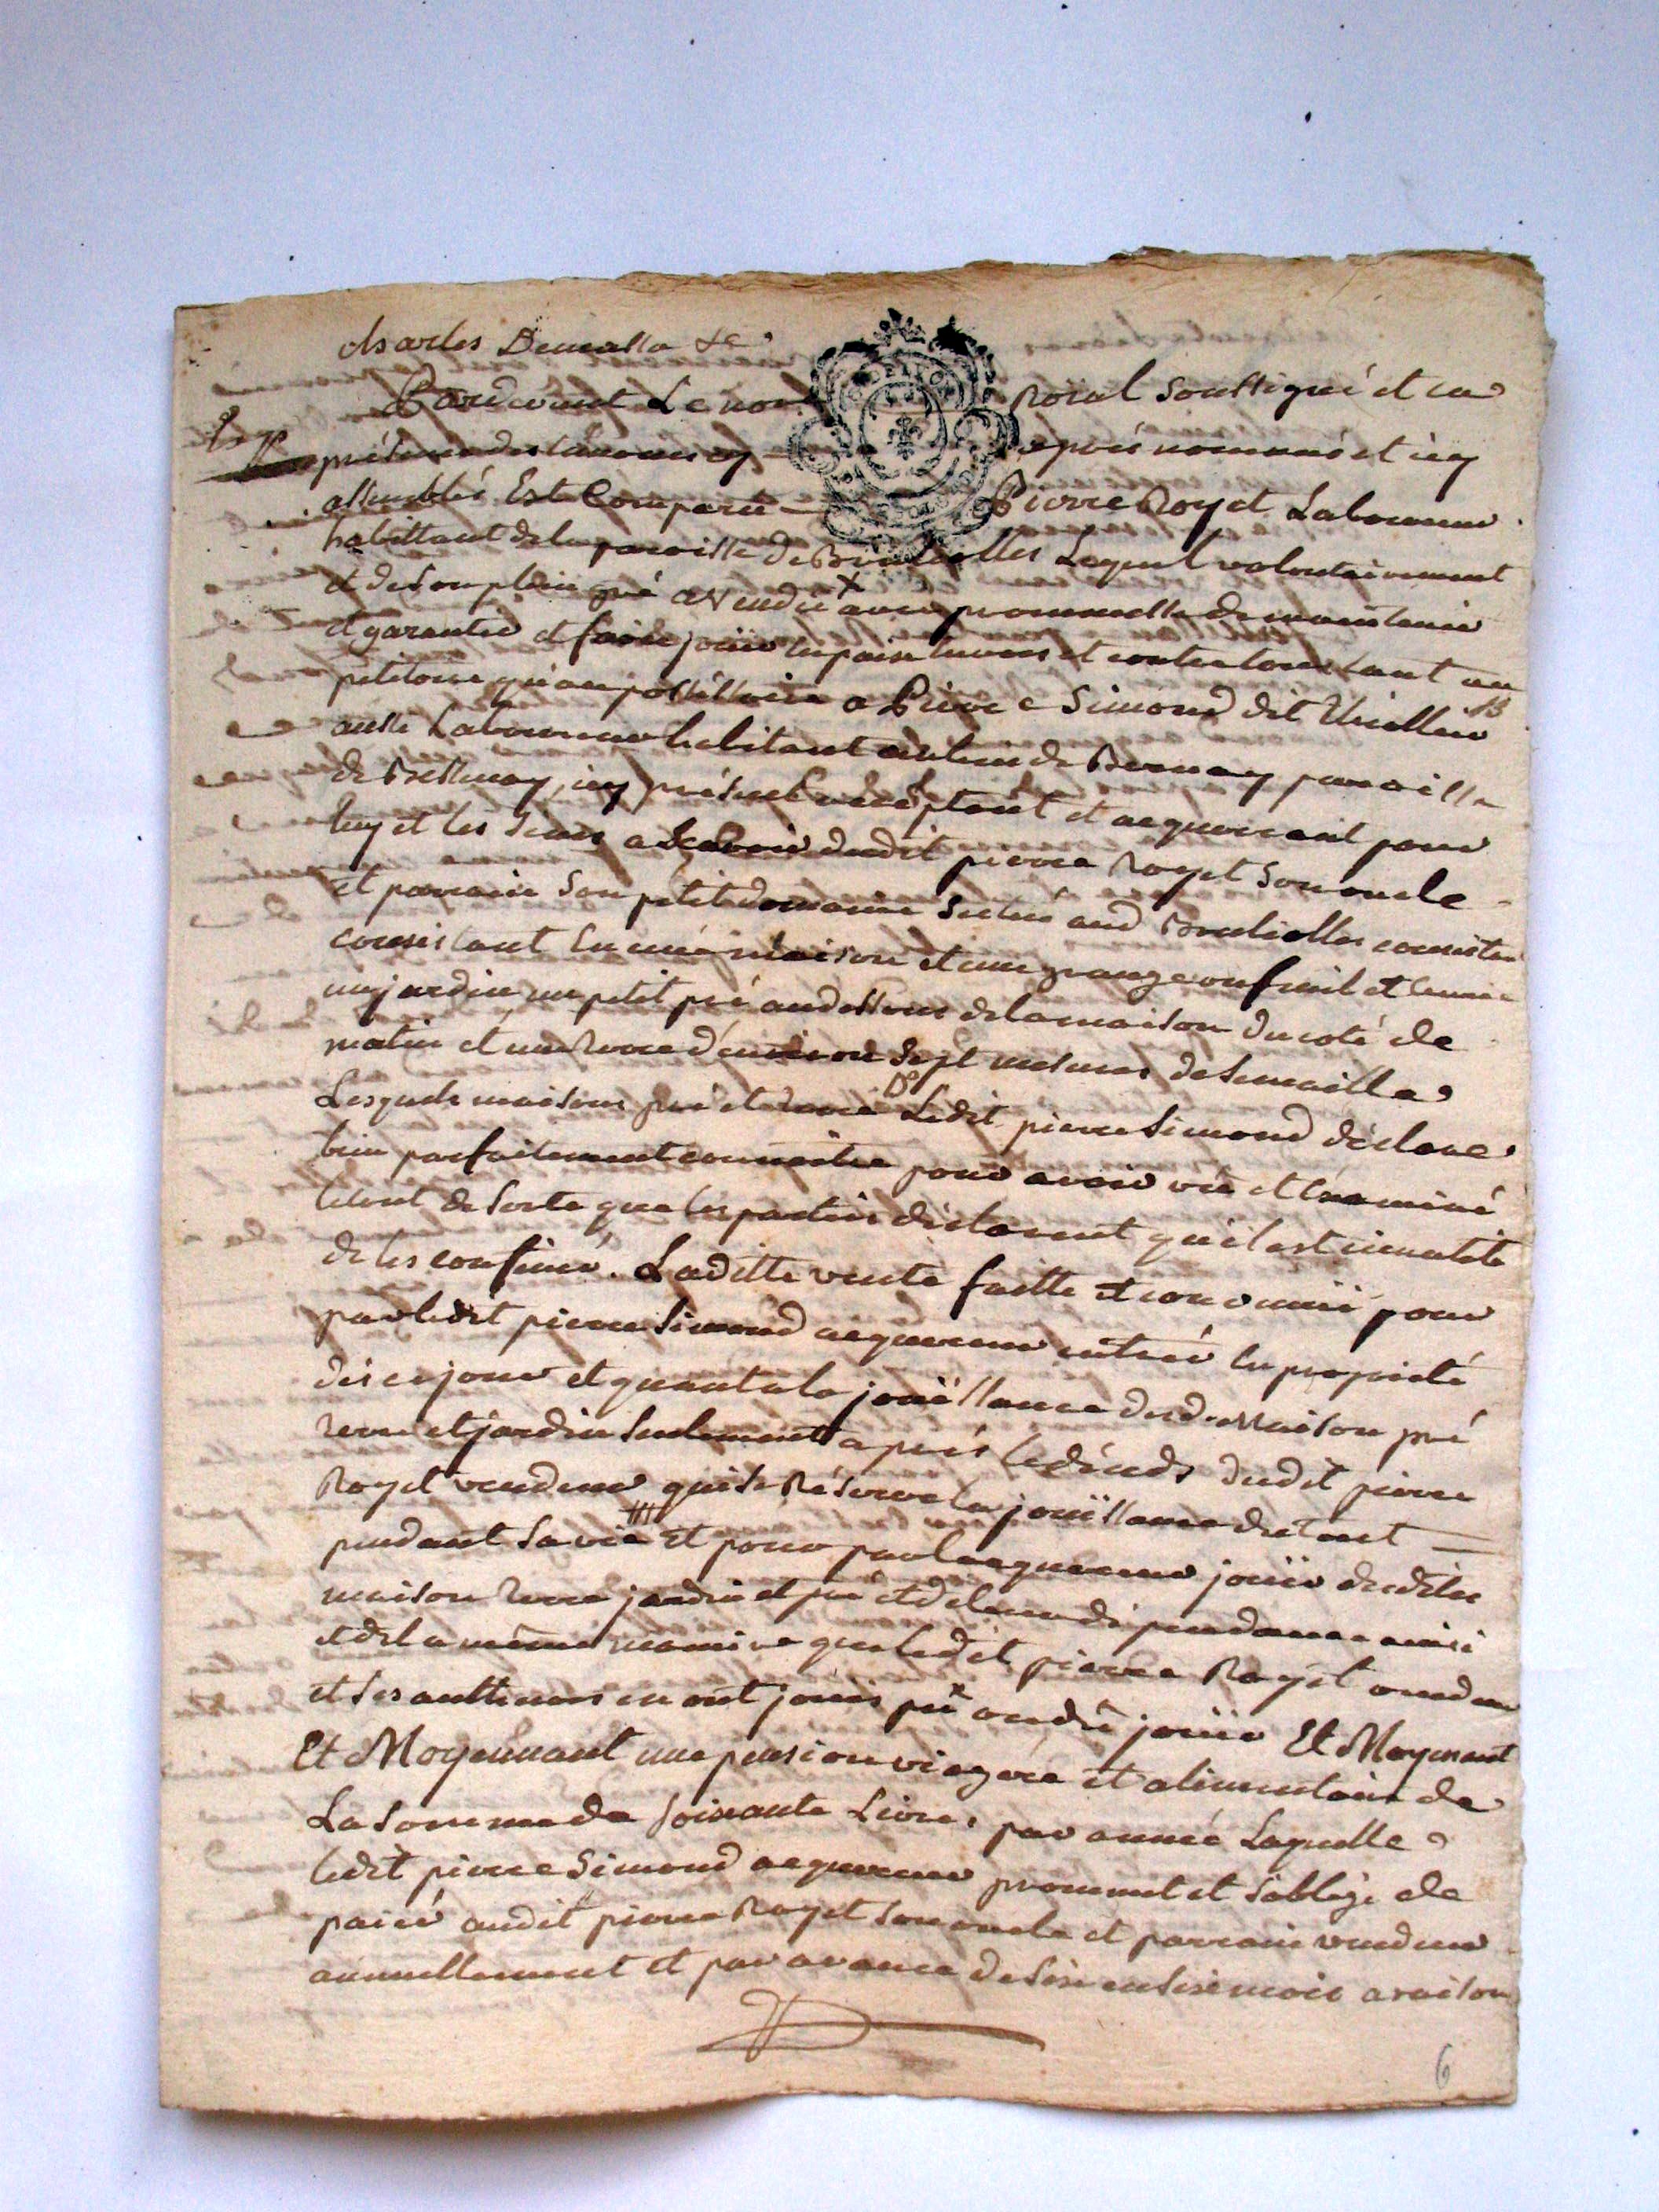 charles
Pardevant Le not Roïal Soussigné et en
présence des temoins cy apprés nommés et icy
assemblés Est Comparu Pierre Royet Laboureur
habittant de la paroisse de Brulliolles Lequel volontairement
et de son plein gré a Vendu x avec prommesse de maintenir
et garantir et faire jouir en paix envers et contre tous tant au
petitoire qu'au possessoire a Pierre Simond dit
aussy Laboureur habitant au lieu de Bernay paroisse
de Bessenay, icy présent acceptant et acquerant pour
luy et les siens a Scavoir dudit pierre Royet son oncle
et parrain son petit domaine situé aud Brulliolles
consistant en une maison et une grange ou fenil et
un jardin un petit pré au dessous de la maison du coté de
matin et une terre d'environ sept mesures de semaille
Lesquels maison pré et terre Ledit pierre Simond déclare
bien parfaitement connoitre pour avoir vû et examiné
le tout de sorte que les parties déclarent qu'il est innutile
de les confiner. Laditte vente faitte et convenüe pour
par ledit pierre Simond acquereur entrer en propriété
dés ce jour et quant a la joüissance desd. Maison pré
terre et jardin seulement après le décéds dudit pierre
Royet vendeur qui se Réserve la joüissance du tout
pendant sa vie Et pour par l'acquereur joüir desdites
maison terre jardin et pré et de leur dépendance ainsi
et de la même maniere que ledit pierre Royet vendeur
et ses autheurs en ont jouis pû ou dû joüir Et Moyenant
Et Moyennant une pension viagere et alimentaire de
La somme de soixante Livres par année Laquelle
ledit pierre Simond acquereur prommet et s'oblige de
païer audit pierre Royet son oncle et parrain vendeur
annuellement et par avance de six en six mois a raison
6